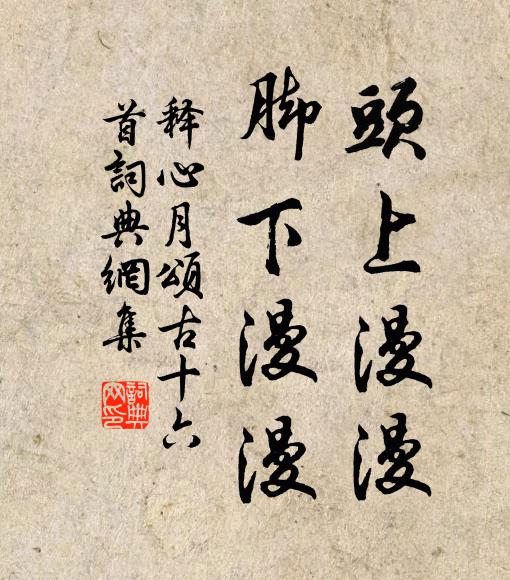 頭上漫漫
脚下漫漫
释心月頌古十六
首詞典網集
詞典
网印